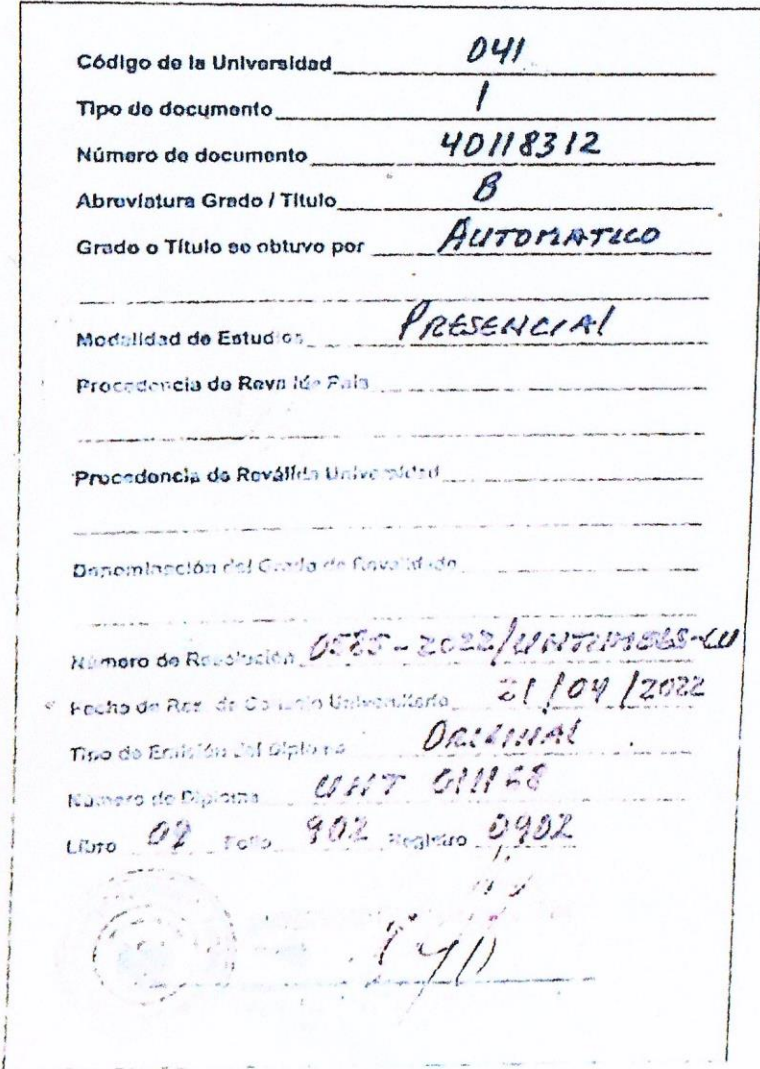 Código de la Universidad 041
Tipo de documento 1
Número de documento 40118312
Abreviatura Grado / Título B
Grado o Título se obtuvo por AUTOMATICO
Modalidad de Estudios PRESENCIAL
Procedencia de Reválida País
Procedencia de Reválida Universidad
Denominación del Grado de Revalidado
Número de Resolución 0585-2022/
Fecha de Res. de Consejo Universitario 21/04/2022
Tipo de Emisión del Diploma ORIGINAL
Número de Diploma UNT 011168
Libro 09 Folio 902 Registro 0902